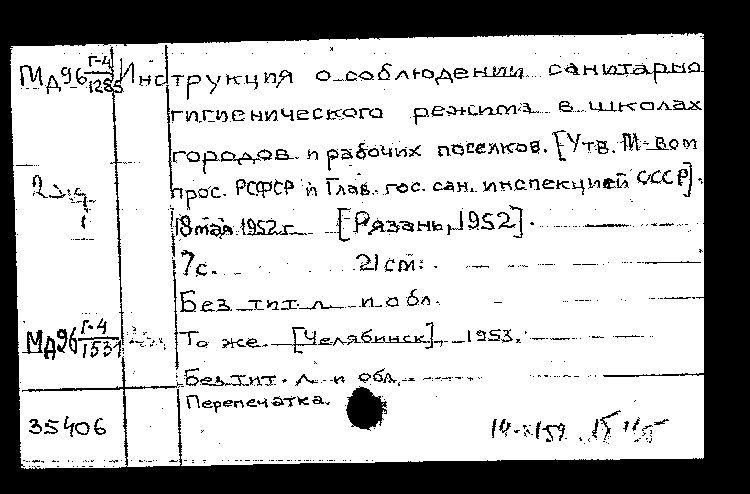 Мд96 Г-4/1285 Инструкция о соблюдении санитарно
гигиенического режима в школах
городов и рабочих поселков. [Утв. М-вом
прос. РСФСР и Глав. гос. сан. инспекцией СССР].
18 мая 1952 г. [Рязань, 1952].
7 с. 21 см.
Без тит. л. и обл.
Мд96 Г-4/1531 То же. [Челябинск], 1953.
Без тит. л. и обл.
Перепечатка.
35406